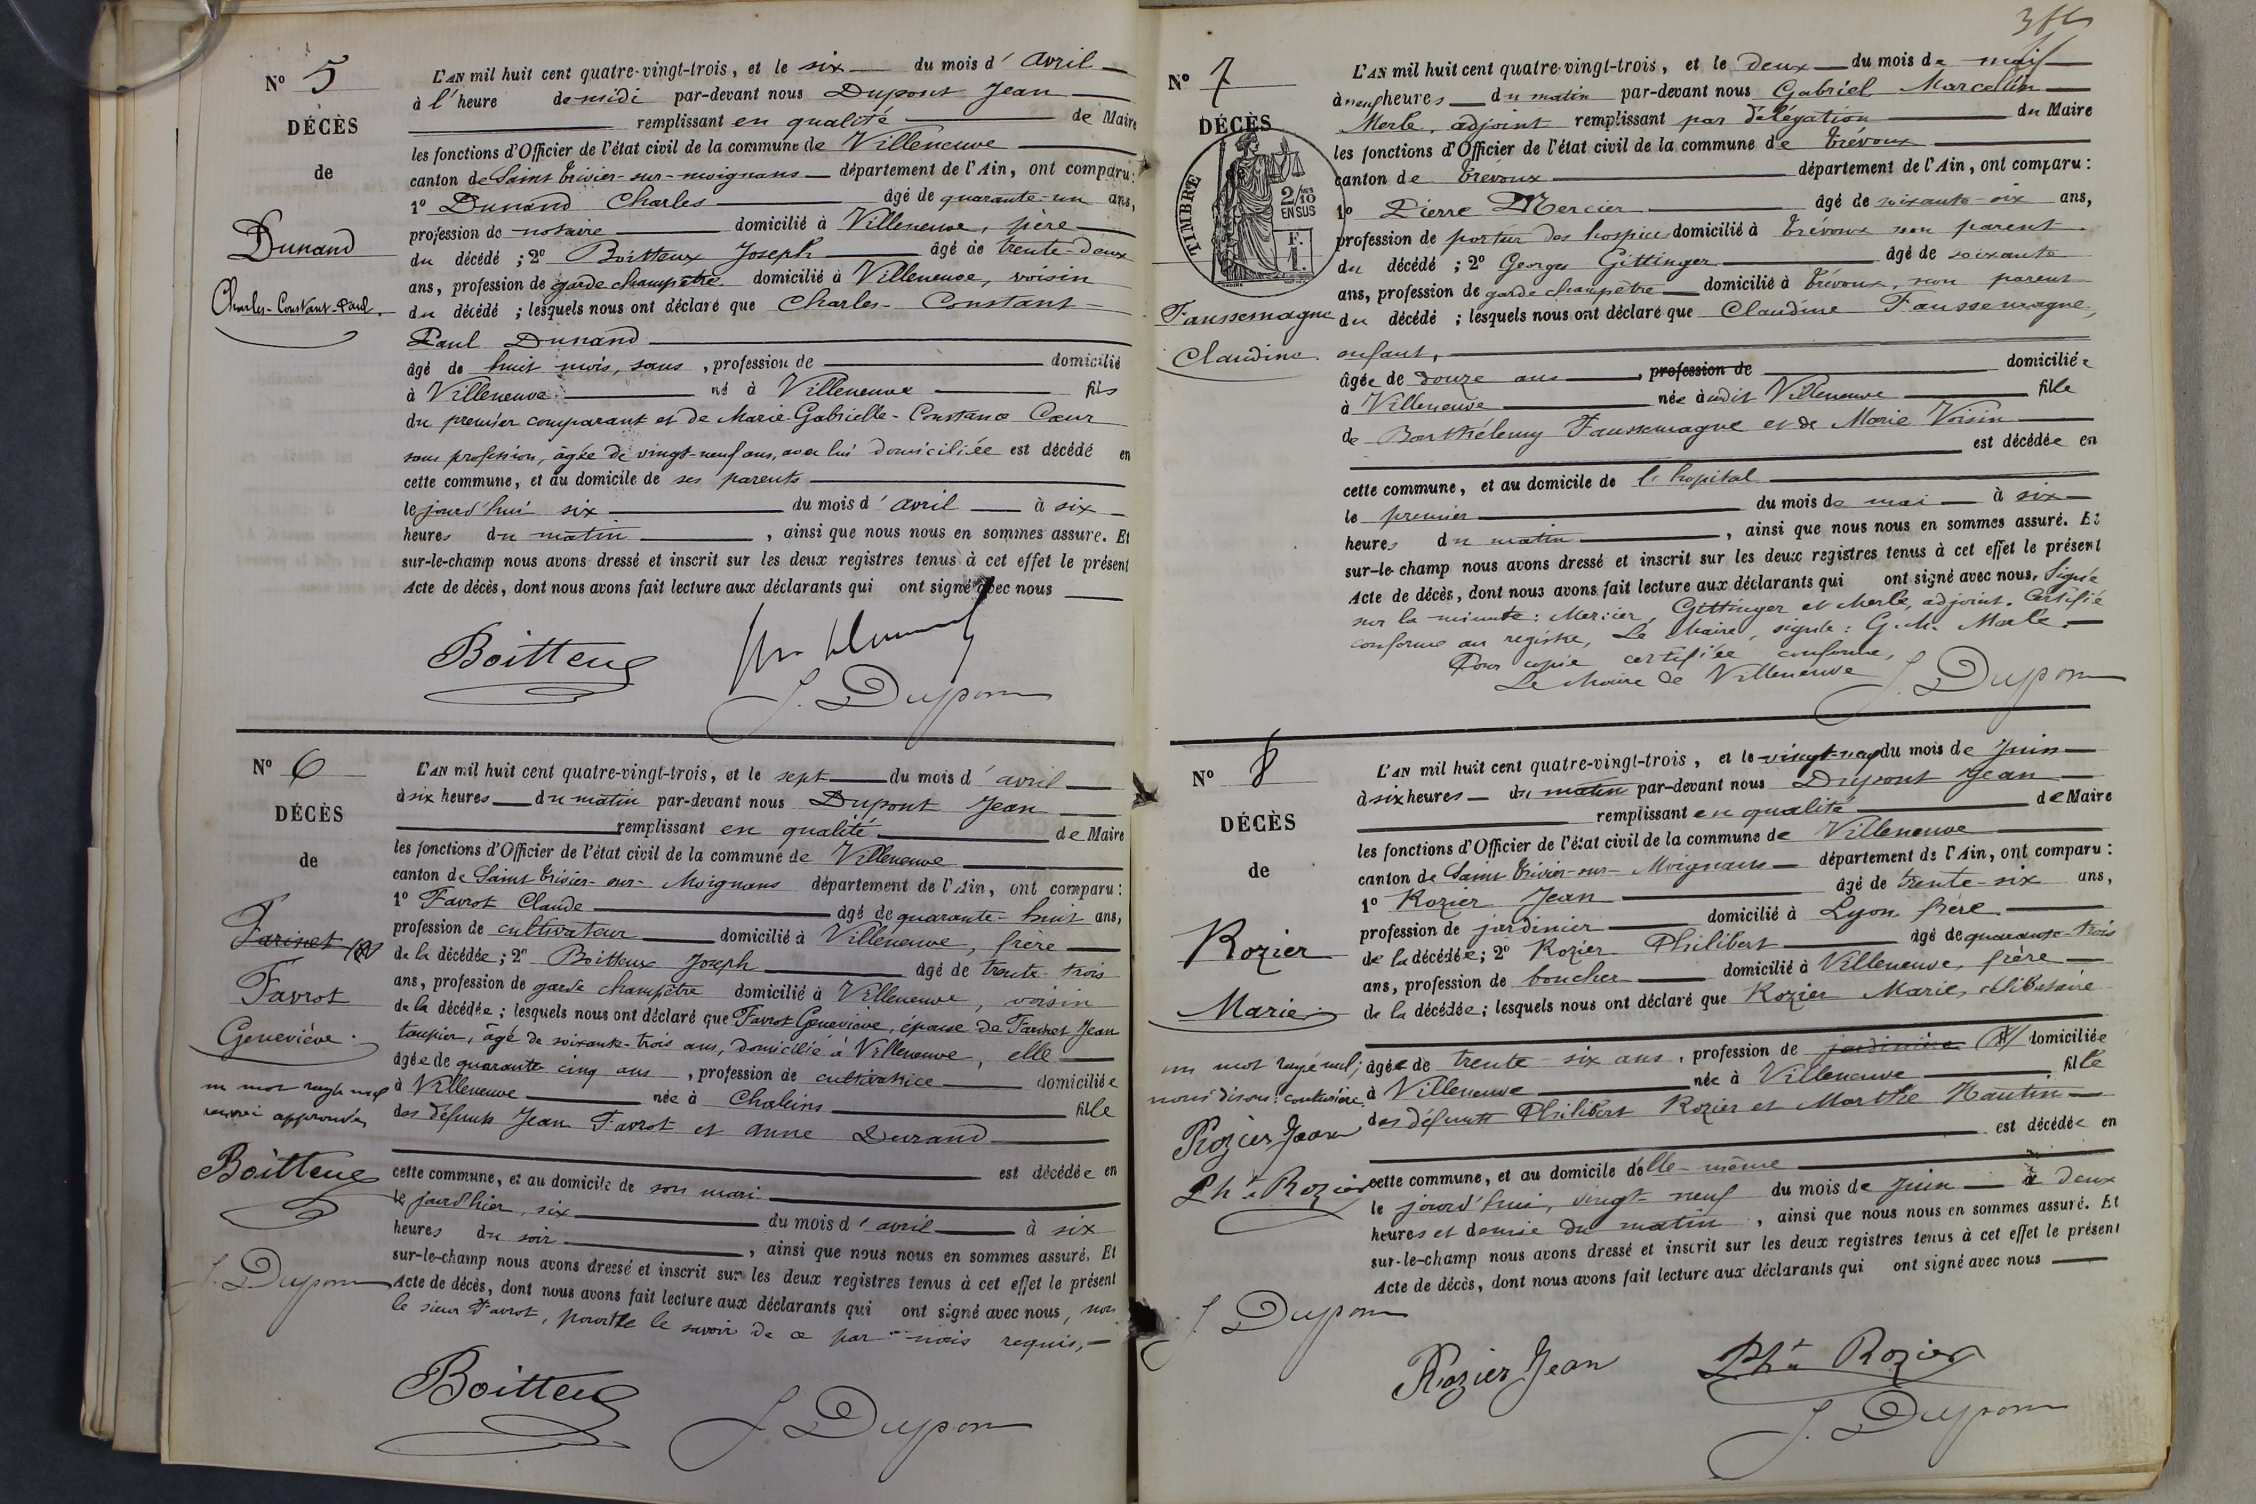 Nº 5
DÉCÈS
de
Dunand
Charles-Constant-Paul.
L'AN mil huit cent quatre-vingt-trois, et le six du mois d' avril
à l'heure de midi par-devant nous Dupont Jean
remplissant en qualité de Maire
les fonctions d'Officier de l'état civil de la commune de Villeneuve
canton de Saint Trivier-sur-moignans département de l'Ain, ont comparu:
1º Dunand Charles âgé de quarante-un ans,
profession de notaire domicilié à Villeneuve, père
du décédé ; 2º Boitteux Joseph âgé de trente-deux
ans, profession de garde champêtre domicilié à Villeneuve, voisin
du décédé ; lesquels nous ont déclaré que Charles-Constant
Paul Dunand
âgé de huit mois, sans , profession de domicilié
à Villeneuve né à Villeneuve fils
du premier comparant et de Marie-Gabrielle-Constance Cœur
sans profession, âgée de vingt-neuf ans, avec lui domiciliée est décédé en
cette commune, et au domicile de ses parents
le jourd'hui six du mois d' avril à six
heures du matin , ainsi que nous nous en sommes assuré. Et
sur-le-champ nous avons dressé et inscrit sur les deux registres tenus à cet effet le présent
Acte de décès, dont nous avons fait lecture aux déclarants qui ont signé avec nous
Boitteux
J. Dupont
Nº 6
DÉCÈS
de
Farinet
Favrot
Geneviève.
un mot rayé nul
renvoi approuvés
Boitteux
J. Dupont
L'AN mil huit cent quatre-vingt-trois, et le sept du mois d' avril
à six heures du matin par-devant nous Dupont Jean
remplissant en qualité de Maire
les fonctions d'Officier de l'état civil de la commune de Villeneuve
canton de Saint Trivier-sur-Moignans département de l'Ain, ont comparu:
1º Favrot Claude âgé de quarante-huit ans,
profession de cultivateur domicilié à Villeneuve, frère
de la décédée; 2º Boitteux Joseph âgé de trente-trois
ans, profession de garde champêtre domicilié à Villeneuve, voisin
de la décédée; lesquels nous ont déclaré que Favrot Geneviève, épouse de Farinet Jean
taupier, âgé de soixante-trois ans, domicilié à Villeneuve, elle
âgée de quarante cinq ans , profession de cultivatrice domiciliée
à Villeneuve née à Chaleins fille
des défunts Jean Favrot et Anne Durand
est décédée en
cette commune, et au domicile de son mari
le jourd'hier, six du mois d' avril à six
heures du soir , ainsi que nous nous en sommes assuré. Et
sur-le-champ nous avons dressé et inscrit sur les deux registres tenus à cet effet le présent
Acte de décès, dont nous avons fait lecture aux déclarants qui ont signé avec nous, non
le sieur Favrot, pour ne le savoir de ce par nous requis,
Boitteux
J. Dupont
Nº 7
DÉCÈS
TIMBRE
2/10
EN SUS
F.
1.
Faussemagne
Claudine.
L'AN mil huit cent quatre-vingt-trois, et le deux du mois de mai
à neuf heures du matin par-devant nous Gabriel Marcellin
Merle, adjoint remplissant par délégation du Maire
les fonctions d'Officier de l'état civil de la commune de Trévoux
canton de Trevoux département de l'Ain, ont comparu:
1º Pierre Mercier âgé de soixante-six ans,
profession de portier des hospices domicilié à Trévoux non parent
du décédé ; 2º Georges Gittinger âgé de soixante
ans, profession de garde champêtre domicilié à Trévoux, non parent
du décédé ; lesquels nous ont déclaré que Claudine Faussemagne,
enfant,
âgée de douze ans , profession de domiciliée
à Villeneuve née audit Villeneuve fille
de Barthélemy Faussemagne et de Marie Voisin
est décédée en
cette commune, et au domicile de l'hopital
le premier du mois de mai à six
heures du matin , ainsi que nous nous en sommes assuré. Et
sur-le-champ nous avons dressé et inscrit sur les deux registres tenus à cet effet le présent
Acte de décès, dont nous avons fait lecture aux déclarants qui ont signé avec nous, Signé
sur la minute: Mercier, Gittinger et Merle, adjoint. Certifié
conforme au registre, Le Maire, signé: G. M. Merle.
Pour copie certifiée conforme,
Le Maire de Villeneuve
J. Dupont
Nº 8
DÉCÈS
de
Rozier
Marie
un mot rayé nul;
nous disons: couturière.
Rozier Jean
Ph.te Rozier
J. Dupont
L'AN mil huit cent quatre-vingt-trois, et le vingt-neuf du mois de Juin
à six heures du matin par-devant nous Dupont Jean
remplissant en qualité de Maire
les fonctions d'Officier de l'état civil de la commune de Villeneuve
canton de Saint Trivier-sur-Moignans département de l'Ain, ont comparu:
1º Rozier Jean âgé de trente-six ans,
profession de jardinier domicilié à Lyon frère
de la décédée; 2º Rozier Philibert âgé de quarante-trois
ans, profession de boucher domicilié à Villeneuve, frère
de la décédée; lesquels nous ont déclaré que Rozier Marie, célibataire
âgée de trente-six ans , profession de jardinière domiciliée
à Villeneuve née à Villeneuve fille
des défunts Philibert Rozier et Marthe Nantin
est décédée en
cette commune, et au domicile d'elle-même
le jourd'hui, vingt-neuf du mois de Juin à deux
heures et demie du matin , ainsi que nous nous en sommes assuré. Et
sur-le-champ nous avons dressé et inscrit sur les deux registres tenus à cet effet le présent
Acte de décès, dont nous avons fait lecture aux déclarants qui ont signé avec nous
Rozier Jean
Ph.te Rozier
J. Dupont